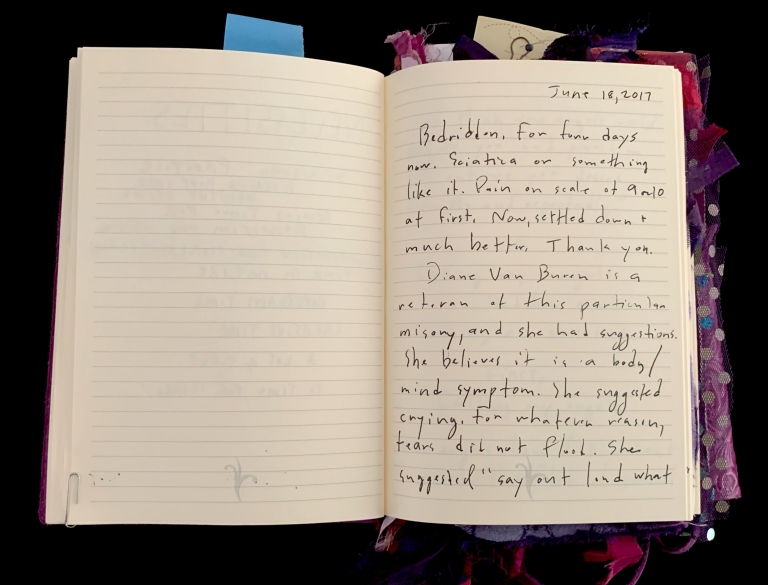 June 18, 2017
Bedridden. For four days
now. Sciatica or something
like it. Pain on scale of 9 or 10
at first. Now, settled down +
much better. Thank you.
Diane Van Buren is a
veteran of this particular
misery, and she had suggestions.
She believes it is a body/
mind symptom. She suggested
crying. For whatever reason,
tears did not flood. She
suggested "say out loud what